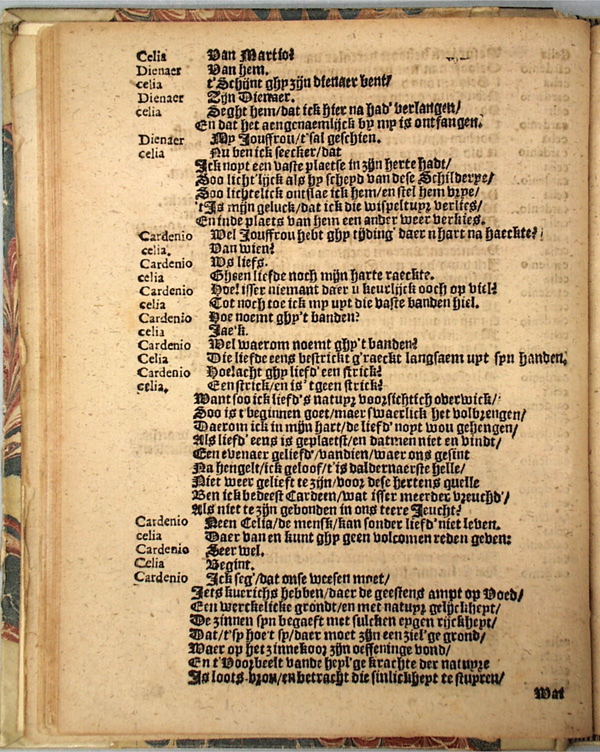 Celia Van Martio?
Dienaer Van hem.
celia t'Schijnt ghy zijn dienaer bent/
Dienaer Zijn Dienaer.
celia Seght hem/dat ick hier na had' verlangen/
En dat het aengenaemlijck by my is ontfangen.
Dienaer My Jouffrou/t'sal geschien.
celia Nu ben ick seecker/dat
Ick noyt een vaste plaetse in zijn herte hadt/
Soo licht'lijck als hy scheyd van dese Schilderye/
Soo lichtelick ontslae ick hem/en stel hem vrye/
't Is mijn geluck/dat ick die wispeltuyr verlies/
En inde plaets van hem een ander weer verkies.
Cardenio Wel Jouffrou hebt ghy tijding' daer u hart na haeckte?
celia. Van wien?
Cardenio Ws liefs.
celia Gheen liefde noch mijn harte raeckte.
Cardenio Hoe! isser niemant daer u keurlijck ooch op viel?
celia Tot noch toe ick my uyt die vaste banden hiel.
Cardenio Hoe noemt ghy't banden?
celia Jae'k.
Cardenio Wel waerom noemt ghy't banden?
Celia Die liefde eens bestrickt g'raeckt langsaem uyt syn handen.
Cardenio Hoe! acht ghy liefd' een strick?
celia. Een strick/en is 't geen strick?
Want soo ick liefd's natuyr voorsichtich overwick/
Soo is t'beginnen goet/maer swaerlick het volbrengen/
Daerom ick in mijn hart/de liefd' noyt wou gehengen/
Als liefd' eens is geplaetst/en datmen niet en vindt/
Een evenaer geliefd'/vandien/waer ons gesint
Na hengelt/ick geloof/t'is d'aldernaerste helle/
Niet weer gelieft te zijn/voor dese hertens quelle
Ben ick bedeest Cardeen/wat isser meerder vreuchd'/
Als niet te zijn gebonden in ons teere Jeucht?
Cardenio Neen Celia/de mensk/kan sonder liefd' niet leven.
celia Daer van en kunt ghy geen volcomen reden geven:
Cardenio Seer wel.
Celia Begint.
Cardenio Ick seg'/dat onse weesen moet/
Jets kuerichs hebben/daer de geestens ampt op Voed/
Een werckelicke grondt/en met natuyr gelijckheyt/
De zinnen syn begaeft met sulcken eygen rijckheyt/
Dat/t'sy hoe t sy/daer moet zijn een ziel'ge grond/
Waer op het zinnekoor zijn oeffeninge vond/
En t'Voorbeelt vande heyl'ge krachte der natuyre
Is loots-bron/en betracht die sinlickheyt te stuyren/
Wat